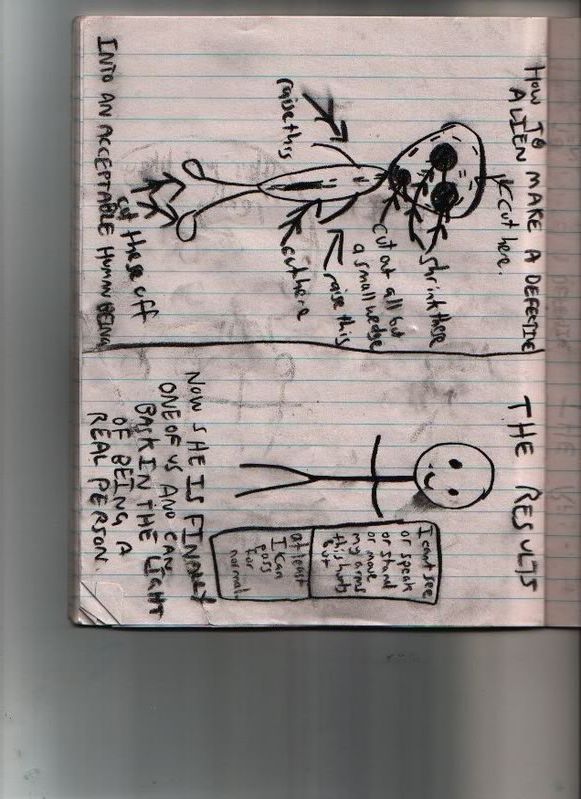 HOW TO MAKE A DEFECTIVE
ALIEN
cut here.
shrink these
cut out all but
a small wedge
raise this
raise this
cut here
cut these off
INTO AN ACCEPTABLE HUMAN BEING
THE RESULTS
I cant see
or speak
or stand
or move
my arms
this hurts
but
at least
I can
pass
for
normal
NOW SHE IS FINALLY
ONE OF US AND CAN
BASK IN THE LIGHT
OF BEING A
REAL PERSON.